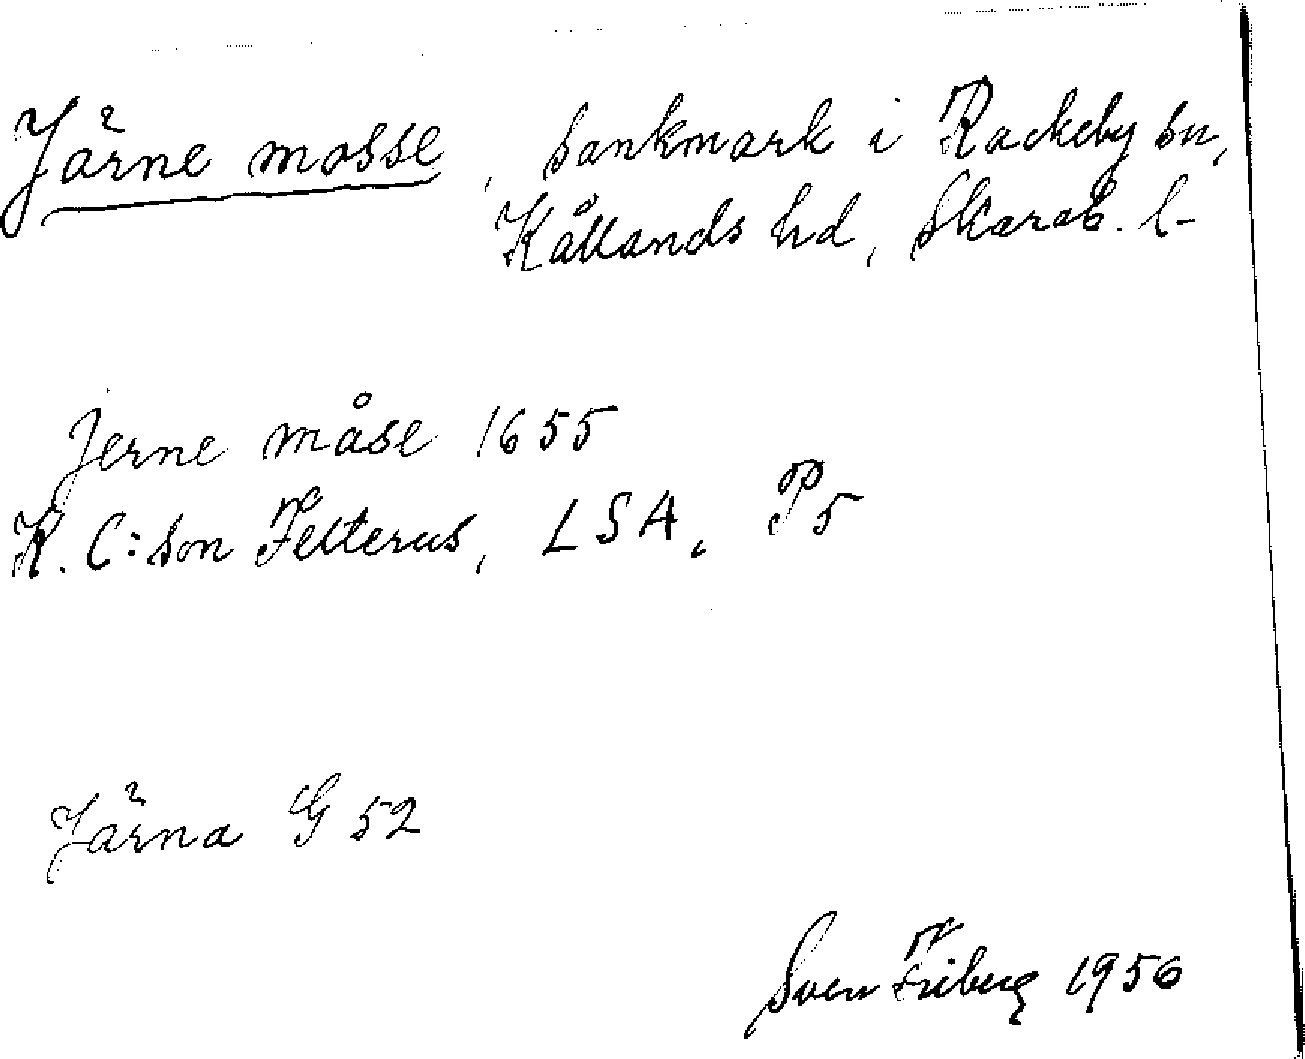 Järne mosse, sankmark i Rackeby sn,
Kållands hd, Skarab. l-
Jerne måse 1655
K. C:son Felterus, LSA, P5
Järna G 52
Sven Friberg 1956